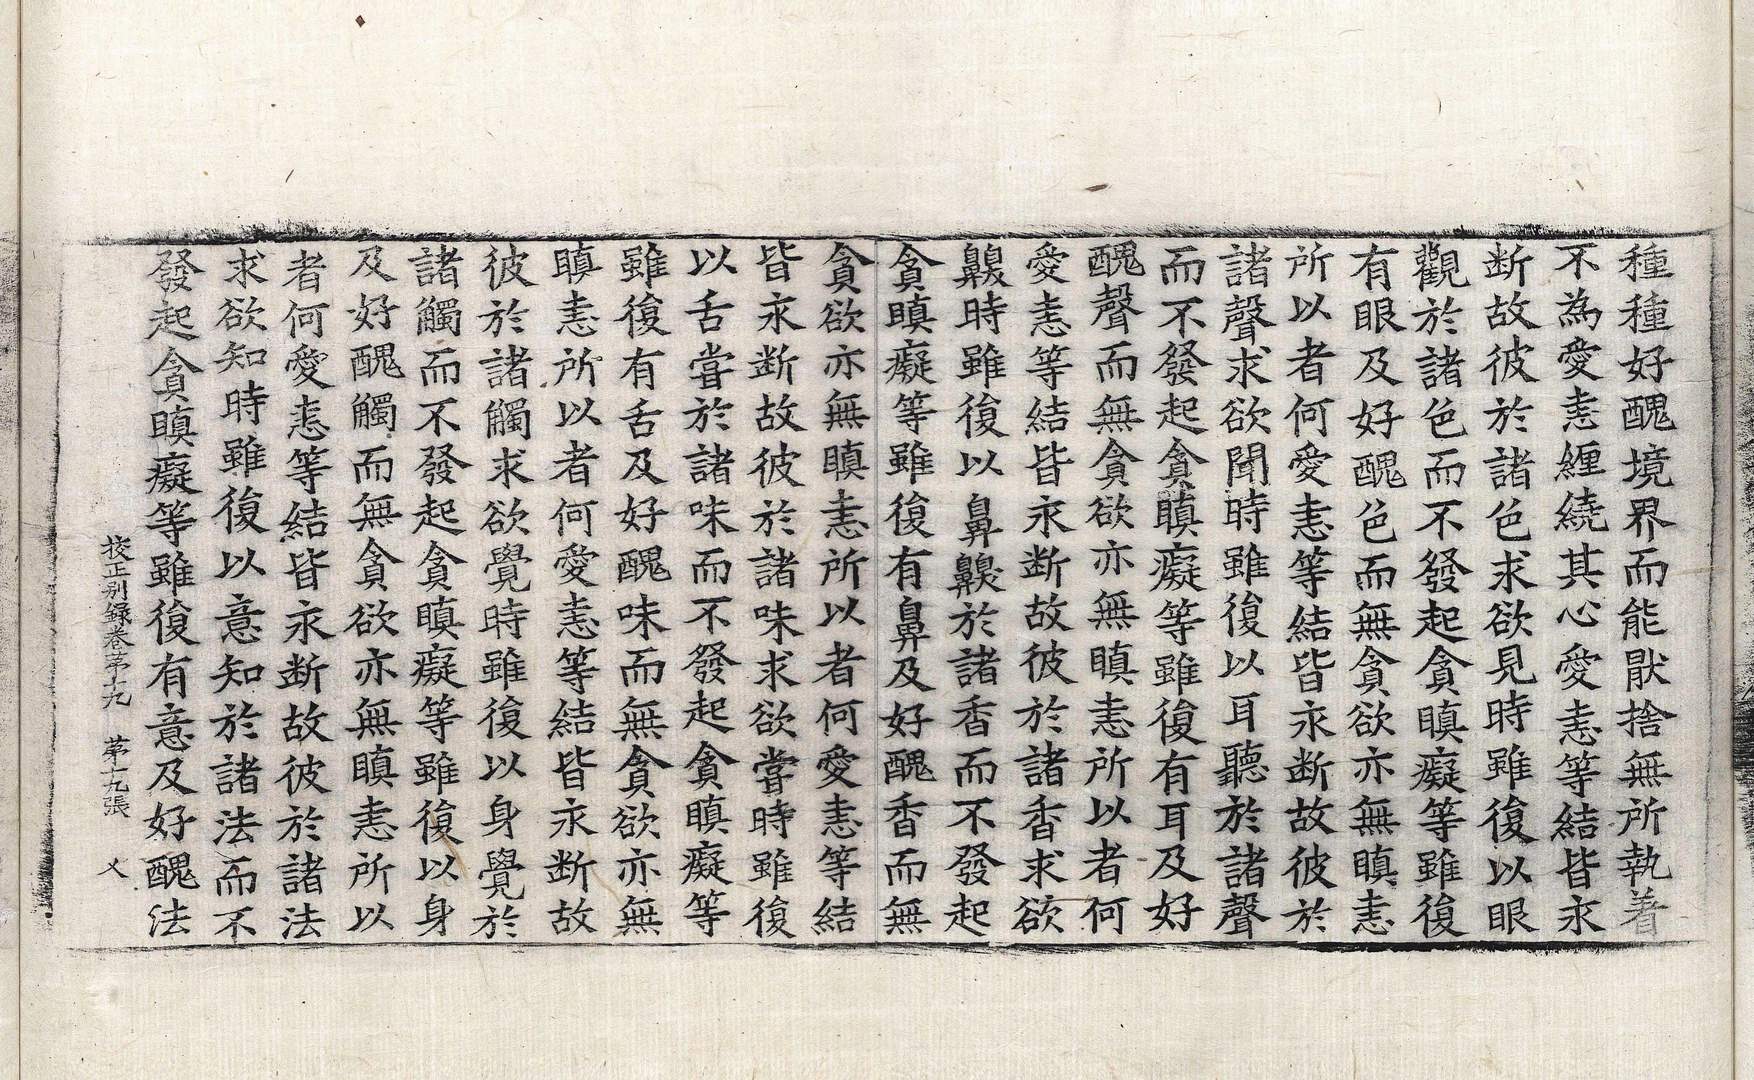 種種好醜境界而能猒捨無所執著
不為愛恚纒繞其心愛恚等結皆永
断故彼於諸色求欲見時雖復以眼
觀於諸色而不發起貪瞋癡等雖復
有眼及好醜色而無貪欲亦無瞋恚
所以者何愛恚等結皆永断故彼於
諸聲求欲聞時雖復以耳聽於諸聲
而不發起貪瞋癡等雖復有耳及好
醜聲而無貪欲亦無瞋恚所以者何
愛恚等結皆永断故彼於諸香求欲
齅時雖復以鼻齅於諸香而不發起
貪瞋癡等雖復有鼻及好醜香而無
貪欲亦無瞋恚所以者何愛恚等結
皆永断故彼於諸味求欲甞時雖復
以舌甞於諸味而不發起貪瞋癡等
雖復有舌及好醜味而無貪欲亦無
瞋恚所以者何愛恚等結皆永断故
彼於諸觸求欲覺時雖復以身覺於
諸觸而不發起貪瞋癡等雖復以身
及好醜觸而無貪欲亦無瞋恚所以
者何愛恚等結皆永断故彼於諸法
求欲知時雖復以意知於諸法而不
發起貪瞋癡等雖復有意及好醜法
挍正别錄卷苐十九 苐十九張 乂